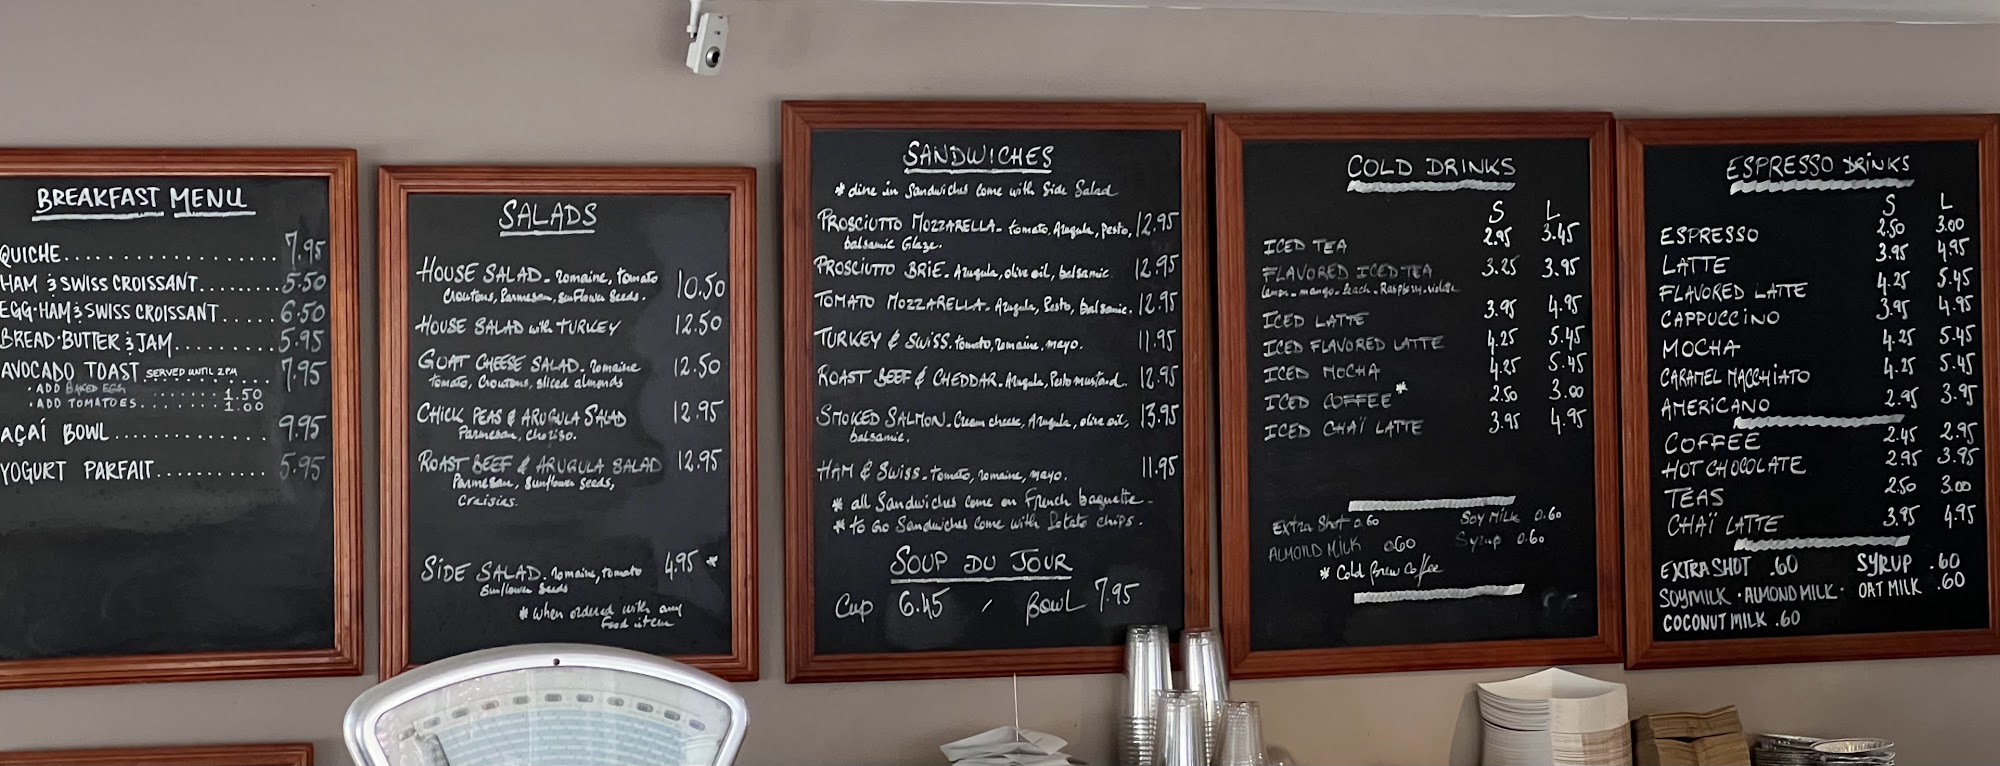 BREAKFAST MENU
QUICHE.................... 7.95
HAM & SWISS CROISSANT......... 5.50
EGG·HAM & SWISS CROISSANT..... 6.50
BREAD·BUTTER & JAM.......... 5.95
AVOCADO TOAST SERVED UNTIL 2PM.... 7.95
· ADD BAKED EGG ....... 1.50
· ADD TOMATOES....... 1.00
AÇAÍ BOWL............. 9.95
YOGURT PARFAIT.......... 5.95
SALADS
HOUSE SALAD - romaine, tomato 10.50
Croutons, Parmesan, Sunflower Seeds.
HOUSE SALAD with TURKEY 12.50
GOAT CHEESE SALAD - romaine 12.50
tomato, Croutons, sliced almonds
CHICK PEAS & ARUGULA SALAD 12.95
Parmesan, Chorizo.
ROAST BEEF & ARUGULA SALAD 12.95
Parmesan, Sunflower Seeds,
Craisies.
SIDE SALAD - romaine, tomato 4.95 *
Sunflower Seeds
* when ordered with any
Food item
SANDWICHES
* dine in Sandwiches Come with Side Salad
PROSCIUTTO MOZZARELLA - tomato, Arugula, Pesto, 12.95
balsamic Glaze.
PROSCIUTTO BRIE - Arugula, olive oil, balsamic 12.95
TOMATO MOZZARELLA - Arugula, Pesto, balsamic. 12.95
TURKEY & SWISS - tomato, romaine, mayo. 11.95
ROAST BEEF & CHEDDAR - Arugula, Pesto mustard. 12.95
SMOKED SALMON - Cream cheese, Arugula, olive oil, 13.95
balsamic.
HAM & SWISS - tomato, romaine, mayo. 11.95
* all Sandwiches come on French baguette -
* to Go Sandwiches Come with Potato chips.
SOUP DU JOUR
Cup 6.45 / Bowl 7.95
COLD DRINKS
S L
ICED TEA 2.95 3.45
FLAVORED ICED TEA 3.25 3.95
Lemon - mango - Peach - Raspberry - violette
ICED LATTE 3.95 4.95
ICED FLAVORED LATTE 4.25 5.45
ICED MOCHA 4.25 5.45
ICED COFFEE* 2.50 3.00
ICED CHAÏ LATTE 3.95 4.95
Extra Shot 0.60 Soy Milk 0.60
ALMOND MILK 0.60 Syrup 0.60
* Cold Brew Coffee
ESPRESSO DRINKS
S L
ESPRESSO 2.50 3.00
LATTE 3.95 4.95
FLAVORED LATTE 4.25 5.45
CAPPUCCINO 3.95 4.95
MOCHA 4.25 5.45
CARAMEL MACCHIATO 4.25 5.45
AMERICANO 2.95 3.95
COFFEE 2.45 2.95
HOT CHOCOLATE 2.95 3.95
TEAS 2.50 3.00
CHAÏ LATTE 3.95 4.95
EXTRA SHOT .60 SYRUP .60
SOYMILK · ALMOND MILK · OAT MILK .60
COCONUT MILK .60